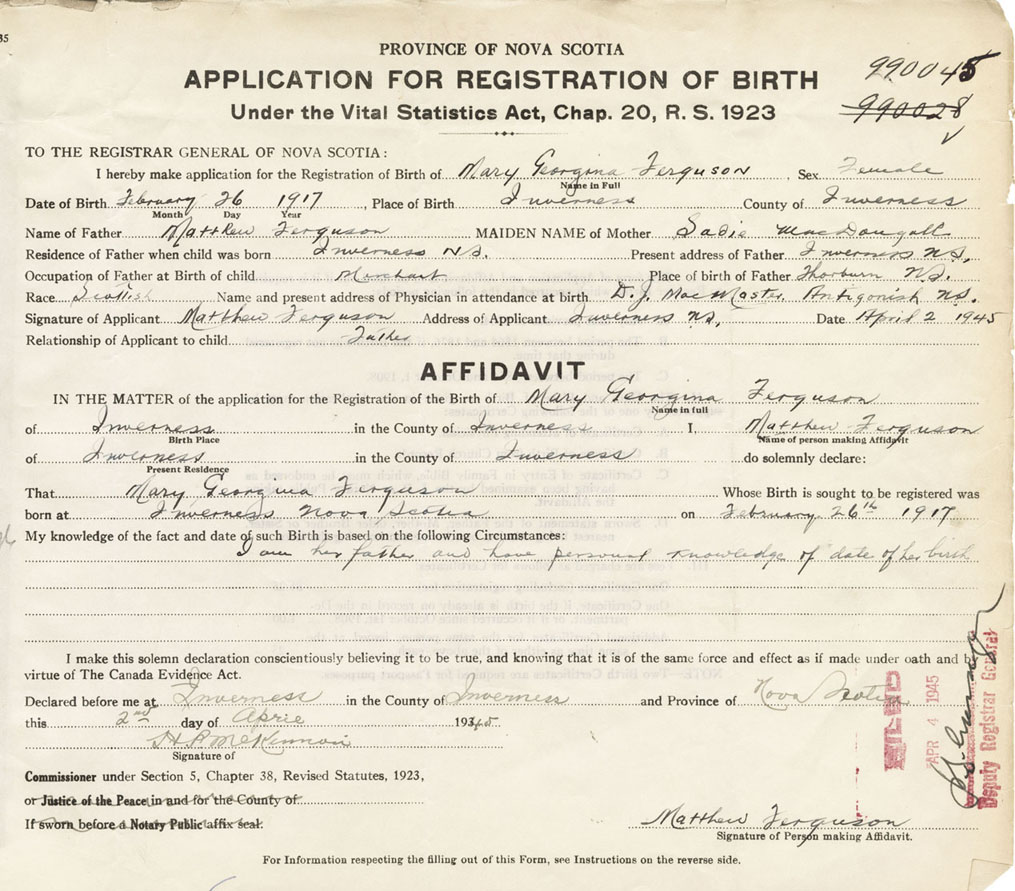 35
PROVINCE OF NOVA SCOTIA
APPLICATION FOR REGISTRATION OF BIRTH
990045
Under the Vital Statistics Act, Chap. 20, R. S. 1923
990028
TO THE REGISTRAR GENERAL OF NOVA SCOTIA:
I hereby make application for the Registration of Birth of Mary Georgina Ferguson Sex Female
Name in Full
Date of Birth February 26 1917, Place of Birth Inverness County of Inverness
Month Day Year
Name of Father Matthew Ferguson MAIDEN NAME of Mother Sadie MacDougall
Residence of Father when child was born Inverness N.S. Present address of Father Inverness N.S.
Occupation of Father at Birth of child Merchant Place of birth of Father Thorburn N.S.
Race Scottish Name and present address of Physician in attendance at birth D. J. MacMaster Antigonish N.S.
Signature of Applicant Matthew Ferguson Address of Applicant Inverness N.S. Date April 2 1945
Relationship of Applicant to child Father
AFFIDAVIT
IN THE MATTER of the application for the Registration of the Birth of Mary Georgina Ferguson
Name in full
of Inverness in the County of Inverness I, Matthew Ferguson
Birth Place Name of person making Affidavit
of Inverness in the County of Inverness do solemnly declare:
Present Residence
That Mary Georgina Ferguson Whose Birth is sought to be registered was
born at Inverness Nova Scotia on February 26th 1917
My knowledge of the fact and date of such Birth is based on the following Circumstances:
I am her father and have personal knowledge of date of her birth
I make this solemn declaration conscientiously believing it to be true, and knowing that it is of the same force and effect as if made under oath and by
virtue of The Canada Evidence Act.
Declared before me at Inverness in the County of Inverness and Province of Nova Scotia
this 2nd day of April 1945
Signature of
Commissioner under Section 5, Chapter 38, Revised Statutes, 1923,
or Justice of the Peace in and for the County of
If sworn before a Notary Public affix seal.
Matthew Ferguson
Signature of Person making Affidavit.
For Information respecting the filling out of this Form, see Instructions on the reverse side.
FILED
APR 4 1945
Deputy Registrar General